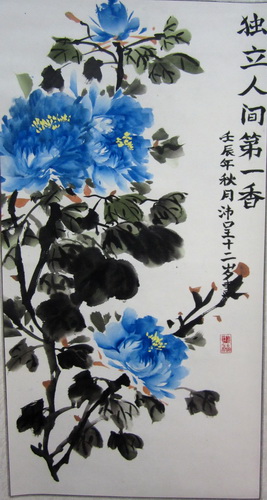 独立人间第一香
壬辰年秋月沛呈十二岁